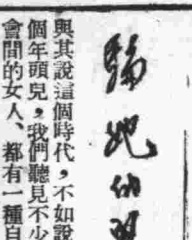 騙她的
與其說這個時代，不如說
個年頭兒，我們聽見不少
會間的女人、都有一種自